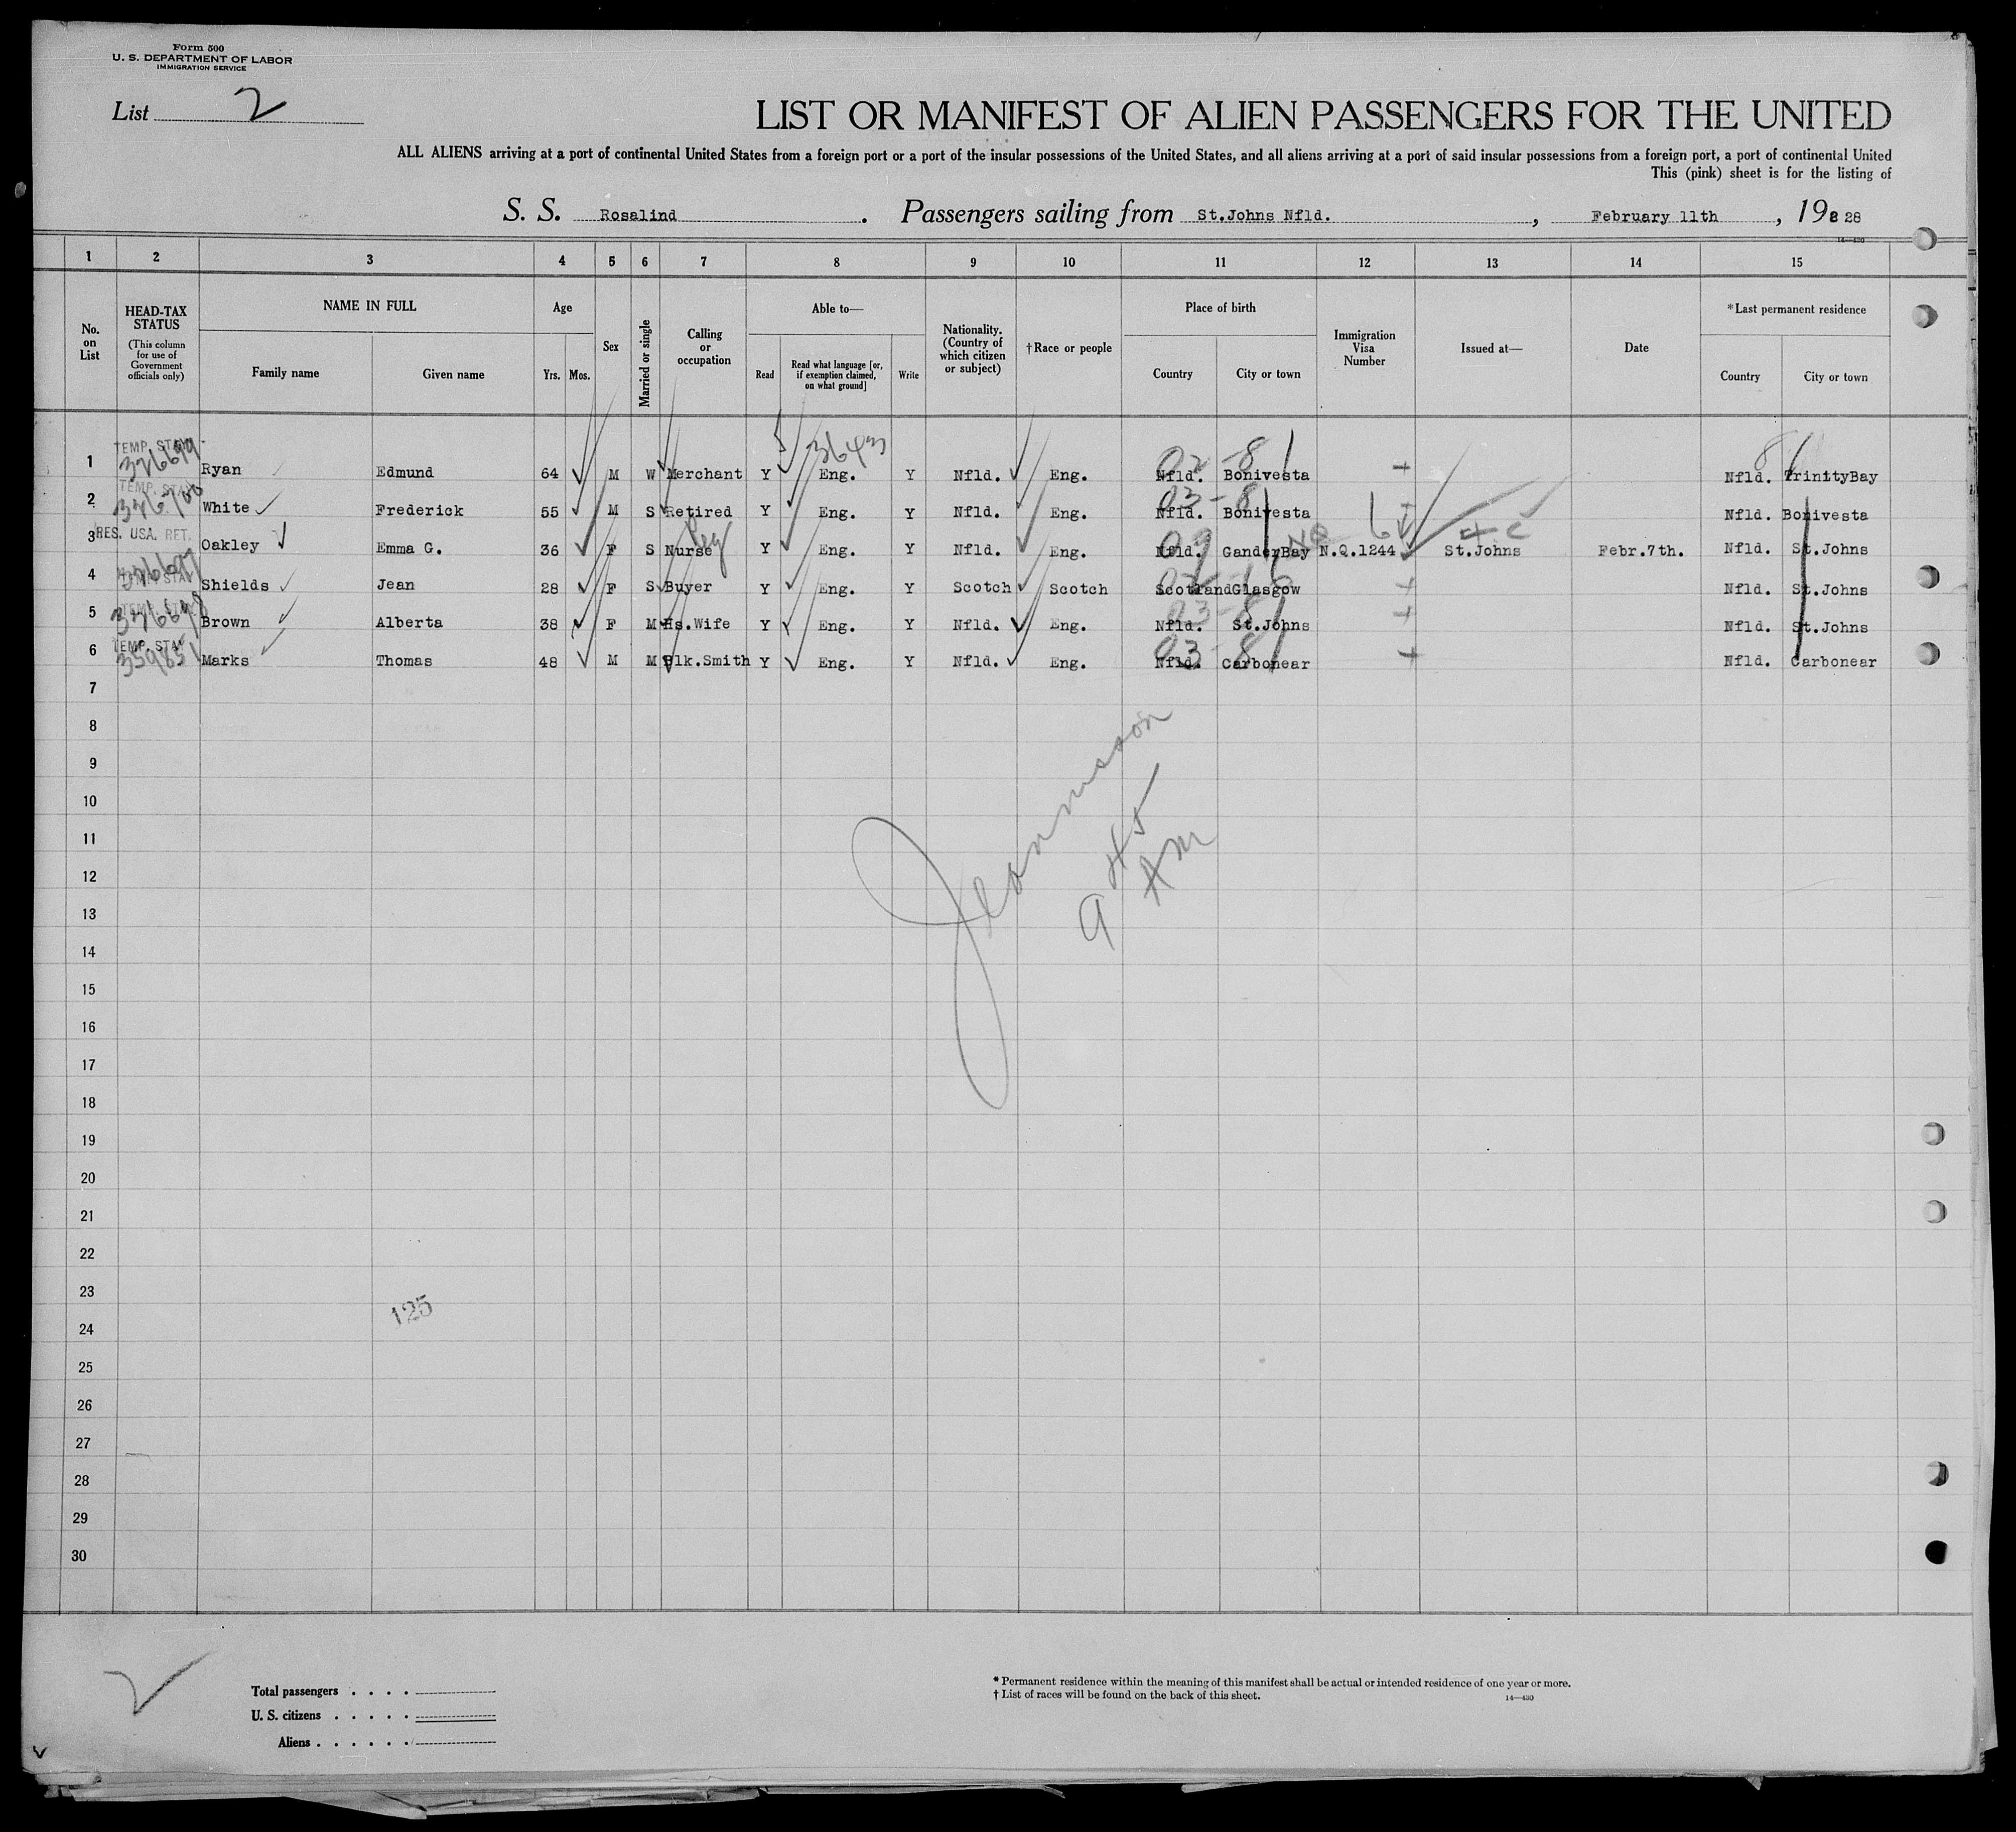 Form 500
U. S. DEPARTMENT OF LABOR
IMMIGRATION SERVICE
List 2
LIST OR MANIFEST OF ALIEN PASSENGERS FOR THE UNITED
ALL ALIENS arriving at a port of continental United States from a foreign port or a port of the insular possessions of the United States, and all aliens arriving at a port of said insular possessions from a foreign port, a port of continental United
This (pink) sheet is for the listing of
S. S. Rosalind. Passengers sailing from St.Johns Nfld., February 11th, 19 28
14—430
1 2 3 4 5 6 7 8 9 10 11 12 13 14 15
No. on List
HEAD-TAX STATUS
(This column for use of Government officials only)
NAME IN FULL
Family name
Given name
Age
Yrs. Mos.
Sex
Married or single
Calling or occupation
Able to—
Read
Read what language [or, if exemption claimed, on what ground]
Write
Nationality. (Country of which citizen or subject)
†Race or people
Place of birth
Country
City or town
Immigration Visa Number
Issued at—
Date
*Last permanent residence
Country
City or town
1 TEMP. STAY Ryan Edmund 64 M W Merchant Y Eng. Y Nfld. Eng. Nfld. Bonivesta Nfld. TrinityBay
2 TEMP. STAY White Frederick 55 M S Retired Y Eng. Y Nfld. Eng. Nfld. Bonivesta Nfld. Bonivesta
3 RES. USA. RET. Oakley Emma G. 36 F S Nurse Y Eng. Y Nfld. Eng. Nfld. GanderBay N.Q.1244 St.Johns Febr.7th. Nfld. St.Johns
4 TEMP. STAY Shields Jean 28 F S Buyer Y Eng. Y Scotch Scotch Scotland Glasgow Nfld. St.Johns
5 TEMP. STAY Brown Alberta 38 F M Hs.Wife Y Eng. Y Nfld. Eng. Nfld. St.Johns Nfld. St.Johns
6 TEMP. STAY 359851 Marks Thomas 48 M M Blk.Smith Y Eng. Y Nfld. Eng. Nfld. Carbonear Nfld. Carbonear
7
8
9
10
11
12
13
14
15
16
17
18
19
20
21
22
23
24
25
26
27
28
29
30
9 45
AM
125
Total passengers . . . .
U. S. citizens . . . . .
Aliens . . . . . .
* Permanent residence within the meaning of this manifest shall be actual or intended residence of one year or more.
† List of races will be found on the back of this sheet.
14—430